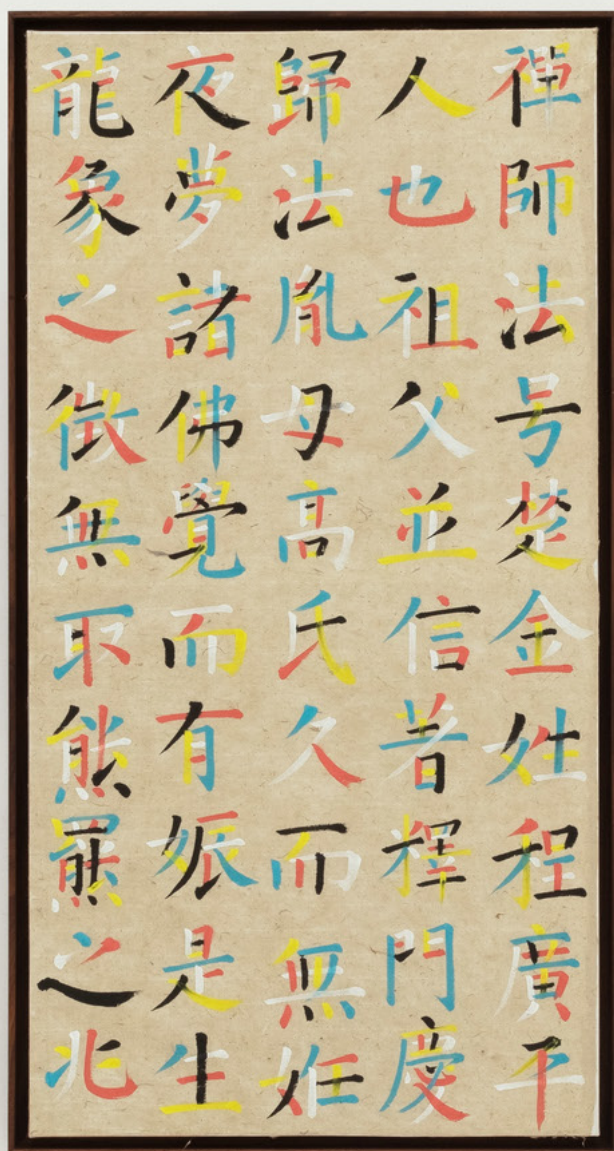 禪師法号楚金姓程廣平
人也祖父並信著釋門慶
歸法胤母高氏久而無妊
夜夢諸佛覺而有娠是生
龍象之徵無取熊羆之兆